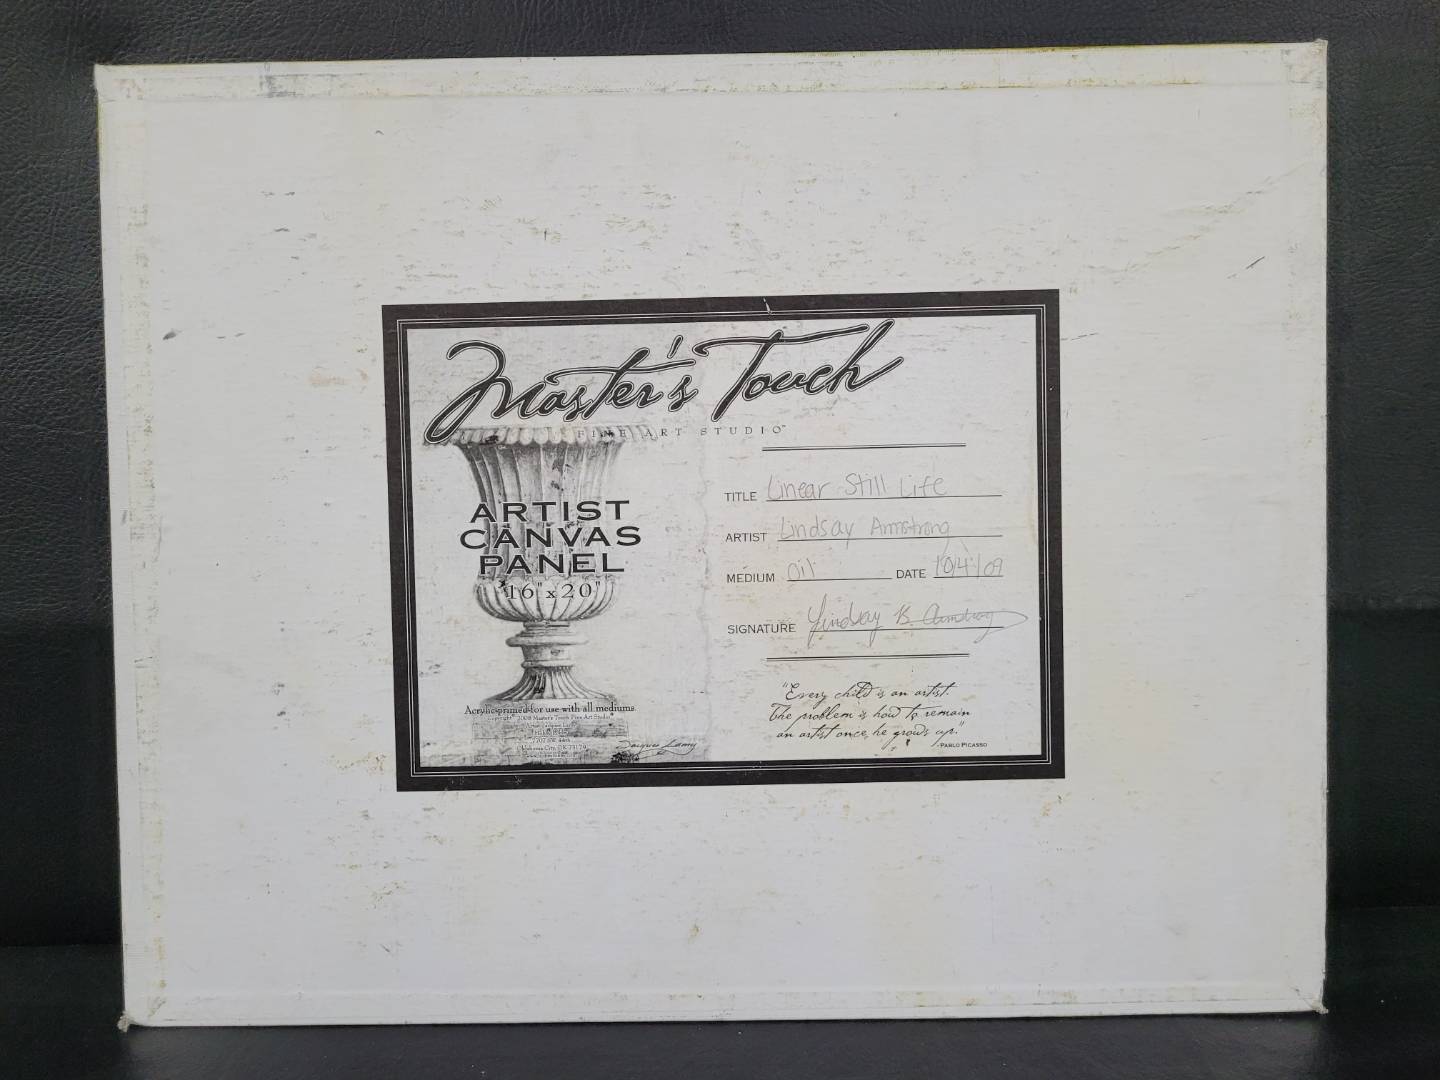 Master's Touch
FINE ART STUDIO™
ARTIST
CANVAS
PANEL
16" x 20"
Acrylic-primed for use with all mediums
Copyright 2008 Master's Touch Fine Art Studio
7707 SW 44th
Oklahoma City, OK 73179
TITLE Linear Still Life
ARTIST Lindsay Armstrong
MEDIUM Oil DATE 10/4/09
SIGNATURE Lindsay B. Armstrong
"Every child is an artist.
The problem is how to remain
an artist once he grows up."
-PABLO PICASSO